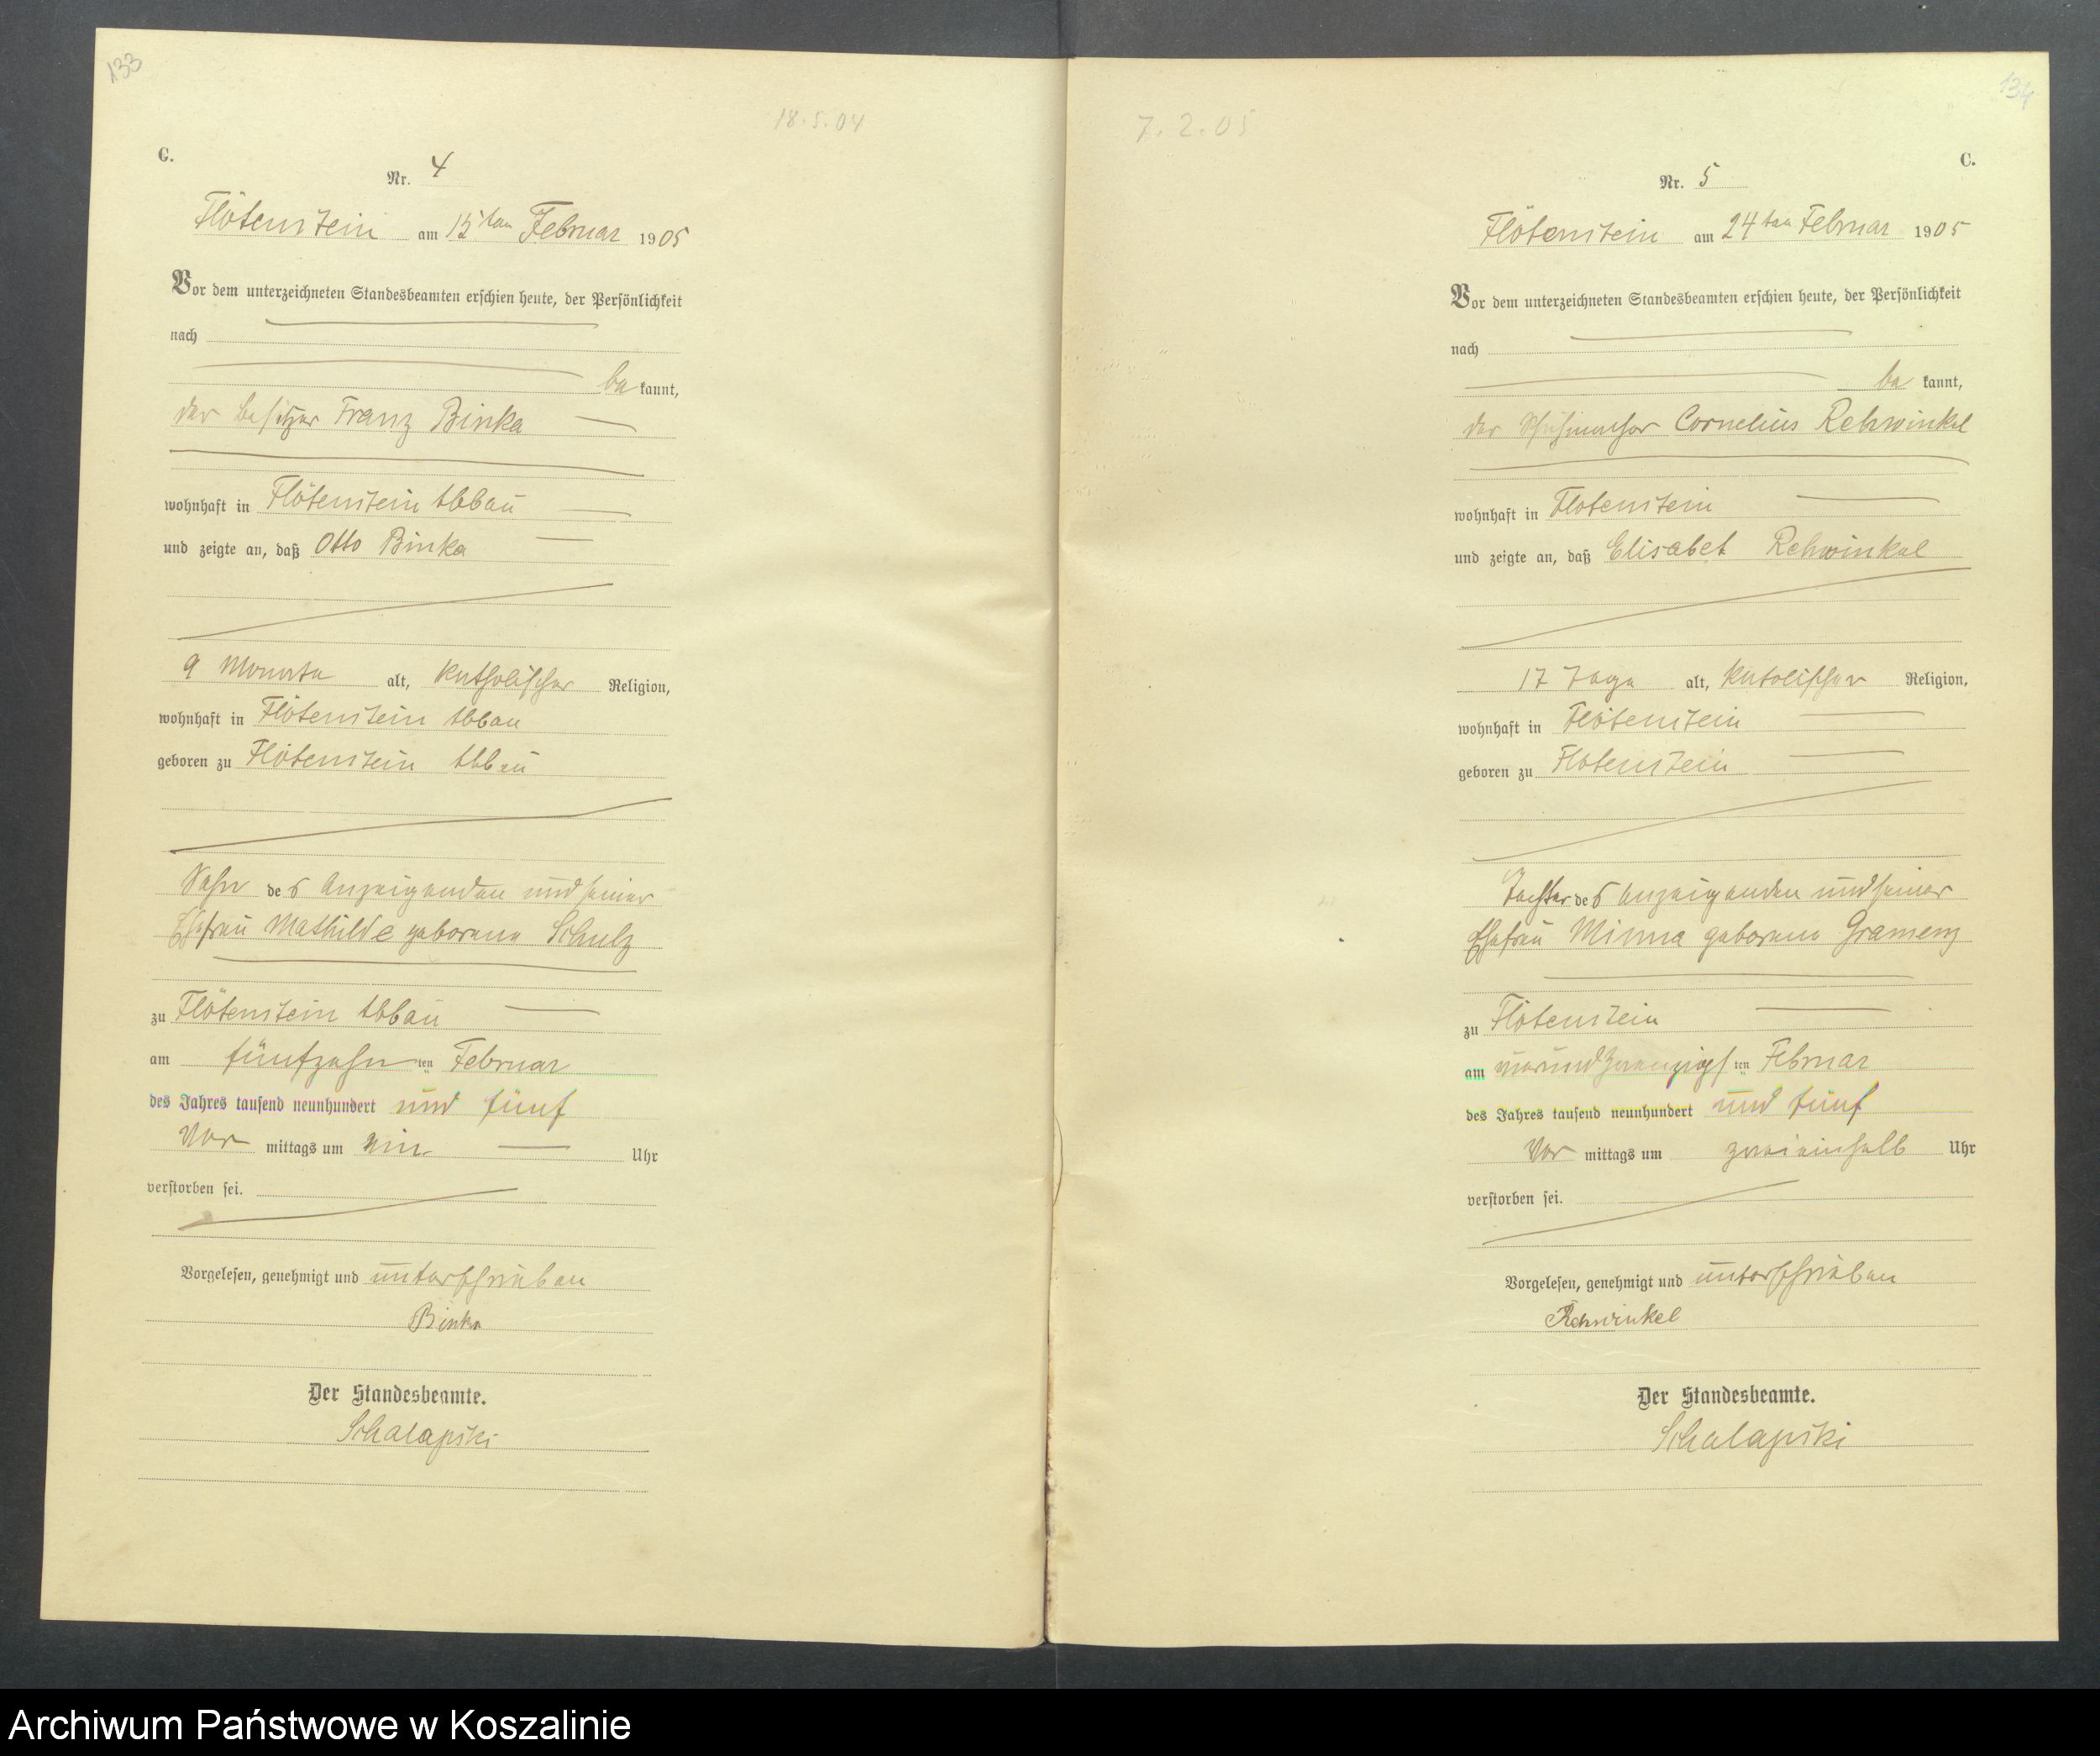 133
18.5.04
C.
Nr. 4
Flötenstein am 15ten Februar 1905
Vor dem unterzeichneten Standesbeamten erschien heute, der Persönlichkeit
nach
be kannt,
der Besitzer Franz Binka
wohnhaft in Flötenstein Abbau
und zeigte an, daß Otto Binka
9 Monate alt, katholischer Religion,
wohnhaft in Flötenstein Abbau
geboren zu Flötenstein Abbau
Sohn des Anzeigenden und seiner
Ehefrau Mathilde geborene Schulz
zu Flötenstein Abbau
am fünfzehn ten Februar
des Jahres tausend neunhundert und fünf
Vor mittags um ein Uhr
verstorben sei.
Vorgelesen, genehmigt und unterschrieben
Binka
Der Standesbeamte.
Schalapski
134
7.2.05
C.
Nr. 5
Flötenstein am 24ten Februar 1905
Vor dem unterzeichneten Standesbeamten erschien heute, der Persönlichkeit
nach
be kannt,
der Schuhmacher Cornelius Rehwinkel
wohnhaft in Flötenstein
und zeigte an, daß Elisabet Rehwinkel
17 Tage alt, katolischer Religion,
wohnhaft in Flötenstein
geboren zu Flötenstein
Tochter des Anzeigenden und seiner
Ehefrau Minna geborene Gramenz
zu Flötenstein
am vierundzwanzigs ten Februar
des Jahres tausend neunhundert und fünf
Vor mittags um zweieinhalb Uhr
verstorben sei.
Vorgelesen, genehmigt und unterschrieben
Rehwinkel
Der Standesbeamte.
Schalapski
Archiwum Państwowe w Koszalinie